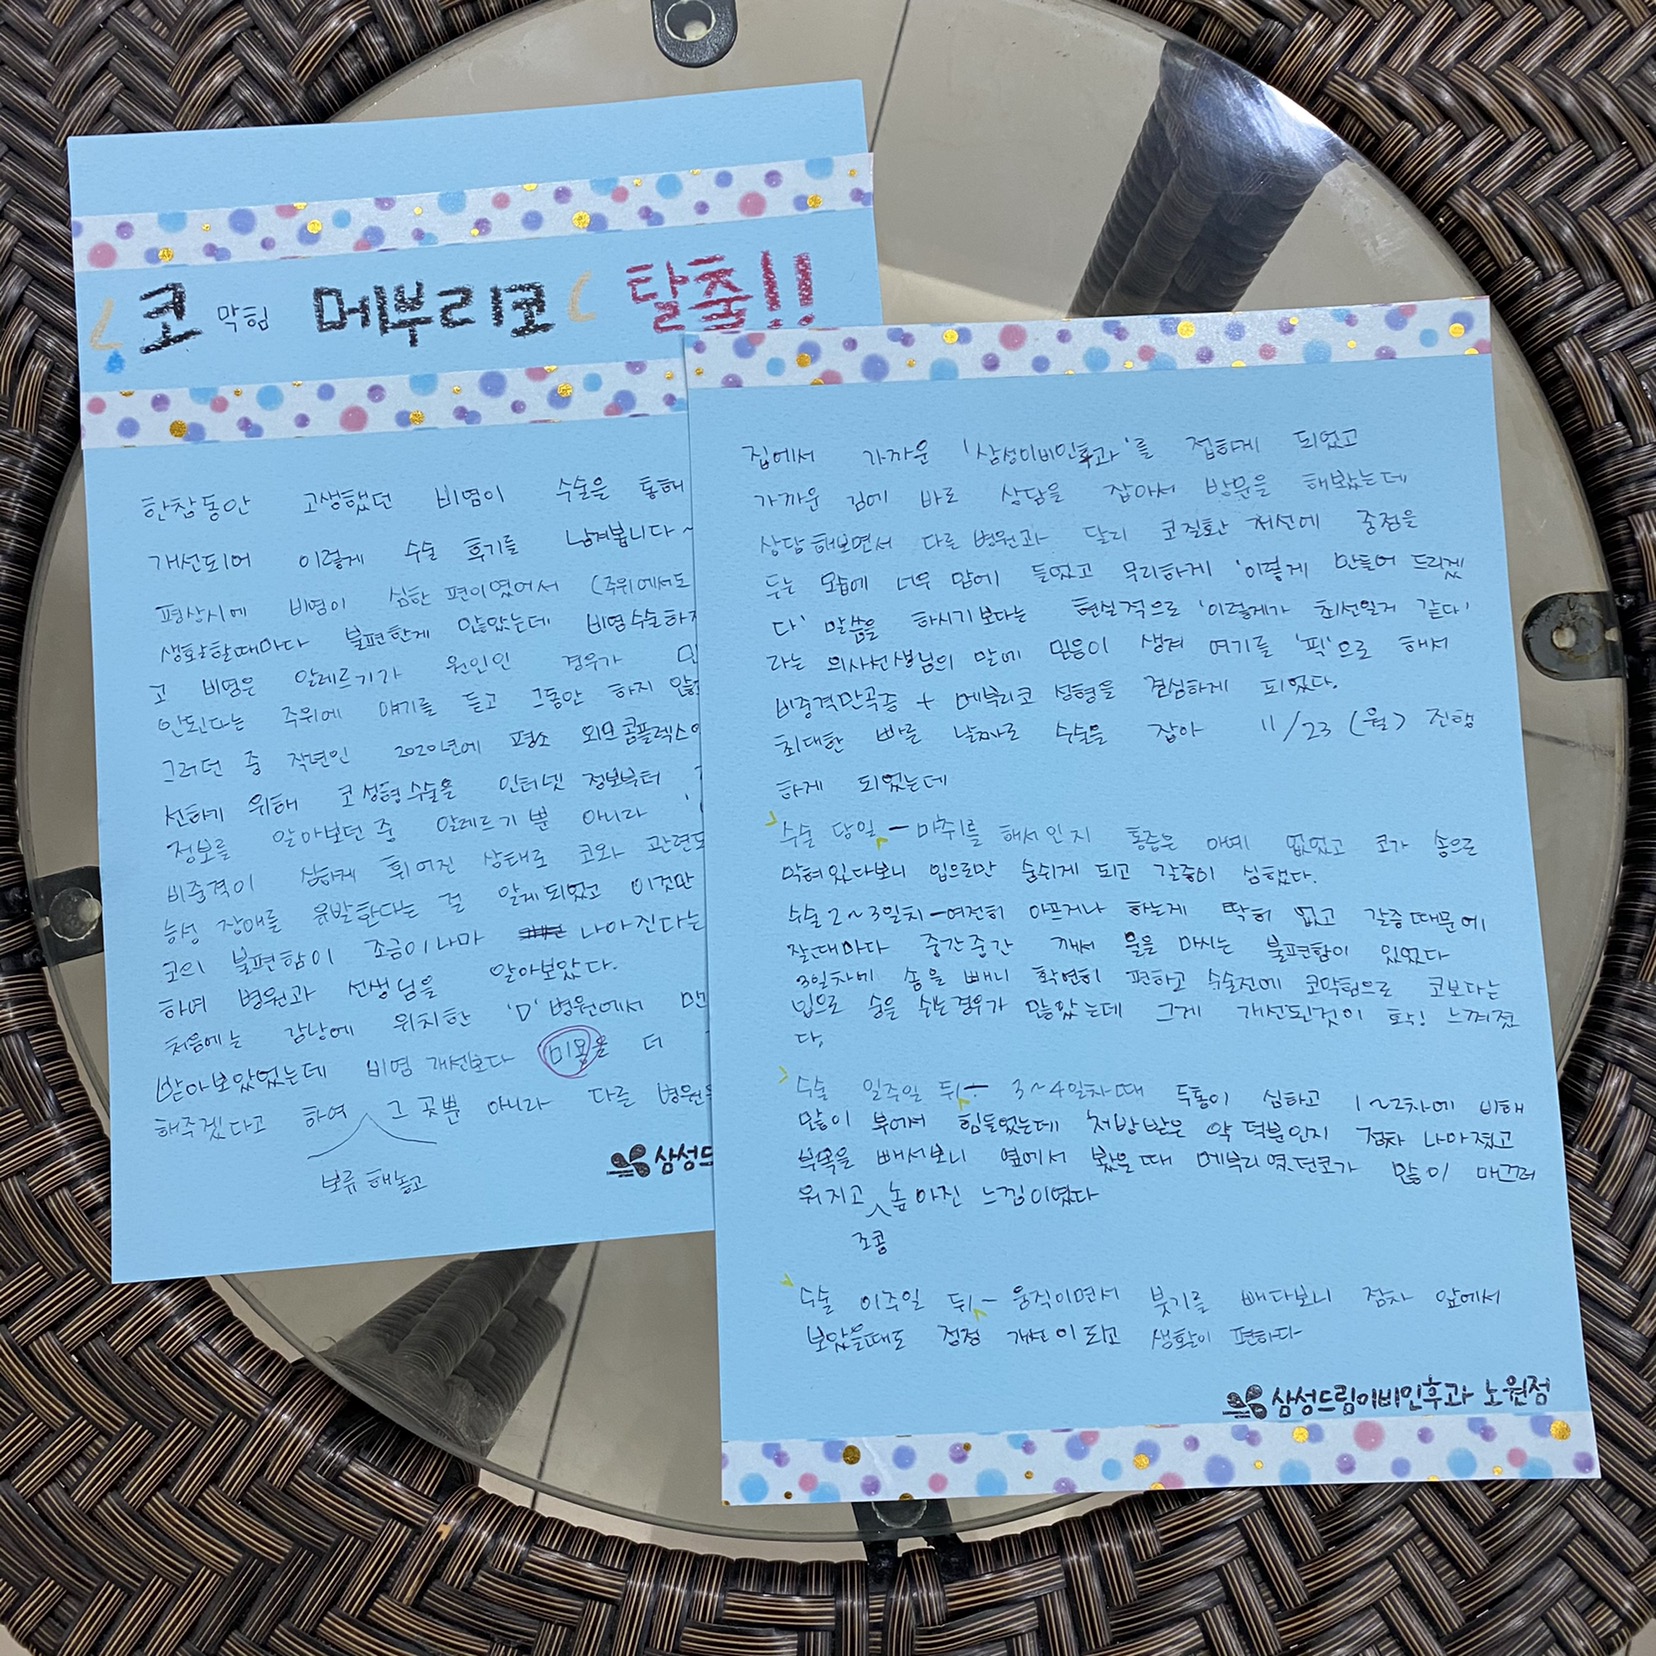 코 막힘 메부리코 탈출!!
한참동안 고생했던 비염이 수술을 통해
개선되어 이렇게 수술 후기를 남겨봅니다~
평상시에 비염이 심한 편이였어서 (주위에서도
생활할때마다 불편한게 많았는데 비염수술하지
고 비염은 알레르기가 원인인 경우가
안된다는 주위에 얘기를 듣고 그동안 하지 않
그러던 중 작년인 2020년에 평소 외모콤플렉스
선하기 위해 코성형수술을 인터넷 정보부터
정보를 알아보던 중 알레르기 뿐 아니라
비중격이 심하게 휘어진 상태로 코와 관련
능성 장애를 유발한다는 걸 알게되었고 이것만
코의 불편함이 조금이나마 나아진다는
하여 병원과 선생님을 알아보았다.
처음에는 강남에 위치한 'D' 병원에서
받아보았었는데 비염 개선보다 미용을 더
해주겠다고 하여 그 곳뿐 아니라 다른 병원
보류해놓고
삼성드
집에서 가까운 '삼성이비인후과'를 접하게 되었고
가까운 김에 바로 상담을 잡아서 방문을 해봤는데
상담해보면서 다른 병원과 달리 코질환 개선에 중점을
두는 모습에 너무 맘에 들었고 무리하게 '이렇게 만들어 드리겠
다' 말씀을 하시기 보다는 현실적으로 '이렇게가 최선일거 같다'
라는 의사선생님의 말에 믿음이 생겨 여기를 '픽'으로 해서
비중격만곡증 + 메부리코 성형을 결심하게 되었다.
최대한 빠른 날짜로 수술을 잡아 11/23 (월) 진행
하게 되었는데
수술 당일 - 마취를 해서인지 통증은 아예 없었고 코가 솜으로
막혀있다보니 입으로만 숨쉬게 되고 갈증이 심했다.
수술 2~3일차 - 여전히 아프거나 하는게 딱히 없고 갈증때문에
잘때마다 중간중간 깨서 물을 마시는 불편함이 있었다
3일차에 솜을 빼니 확연히 편하고 수술전에 코막힘으로 코보다는
입으로 숨을 쉬는경우가 많았는데 그게 개선된것이 확! 느껴졌
다.
수술 일주일 뒤 - 3~4일차때 두통이 심하고 1~2차에 비해
많이 부어서 힘들었는데 처방받은 약 덕분인지 점차 나아졌고
부목을 빼서보니 옆에서 봤을때 메부리였던코가 많이 매끄러
워지고 높아진 느낌이였다
조금
수술 이주일 뒤 - 움직이면서 붓기를 빼다보니 점차 앞에서
보았을때도 점점 개선이 되고 생활이 편하다
삼성드림이비인후과 노원점